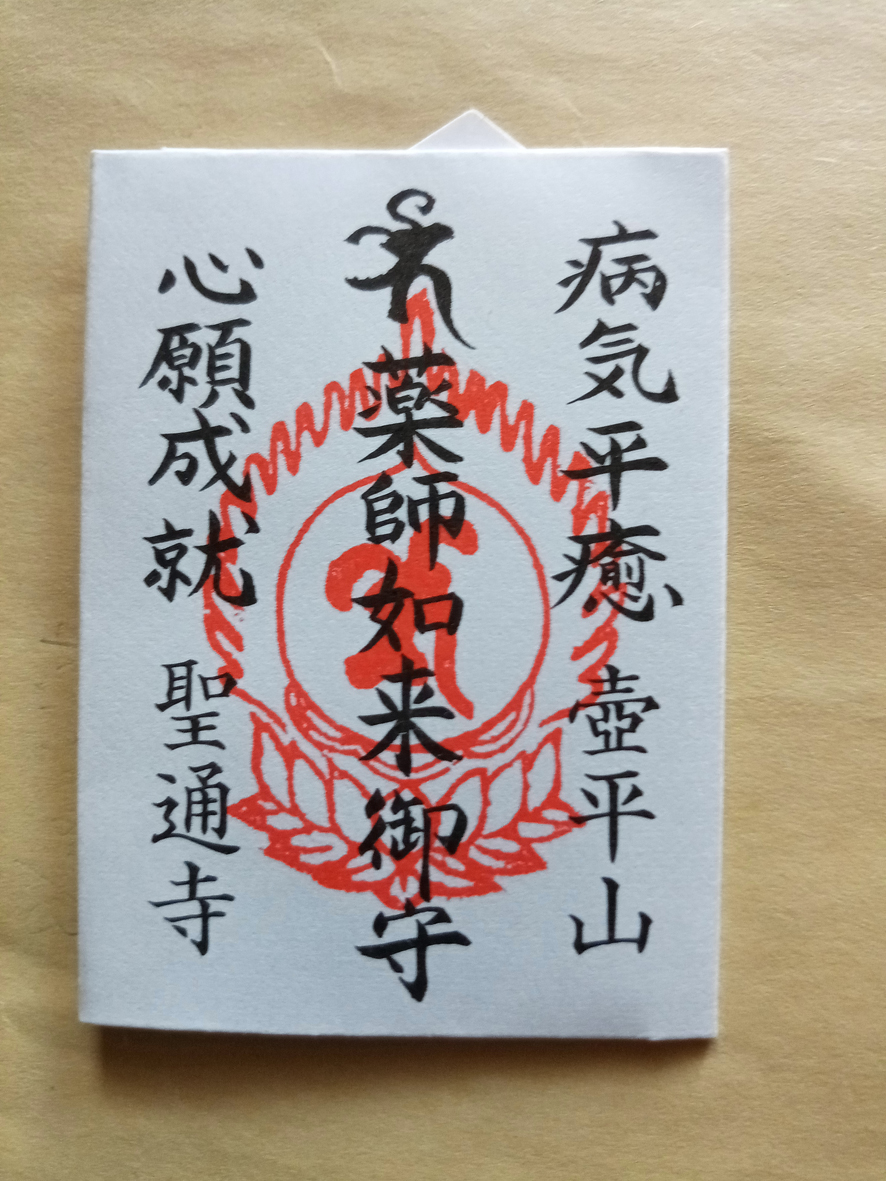 病気平癒 壺平山
薬師如来御守
心願成就 聖通寺